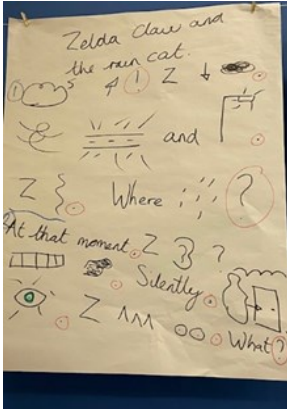 Zelda Claw and
the rain cat.
! 4 ! Z
and
Z Where ?
At that moment. Z 3 ?
Silently
Z
What?